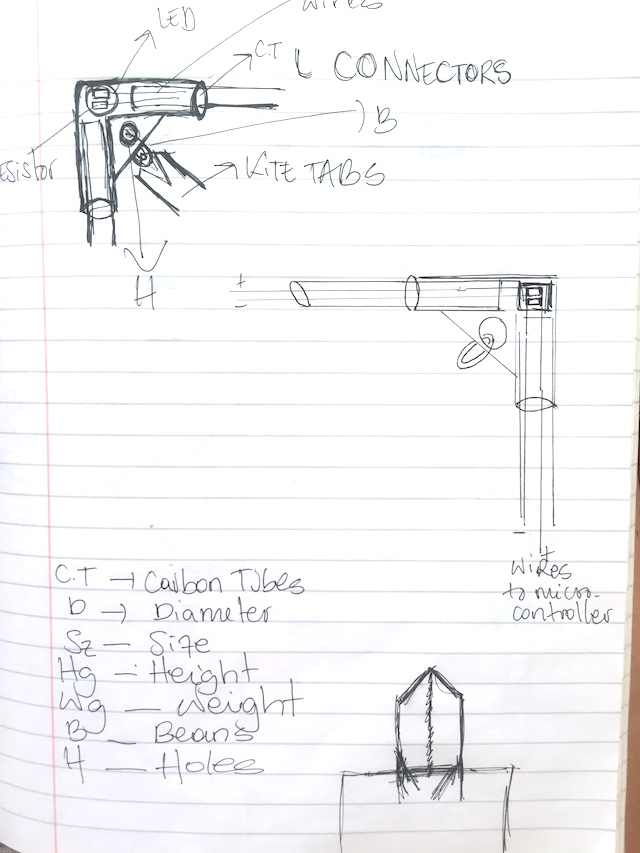 LED
wires
C.T
L CONNECTORS
B
esistor
KITE TABS
H
+
-
-
+
wires
to micro-
controller
C.T → Carbon Tubes
D → Diameter
Sz — Size
Hg — Height
Wg — Weight
B — Beans
H — Holes